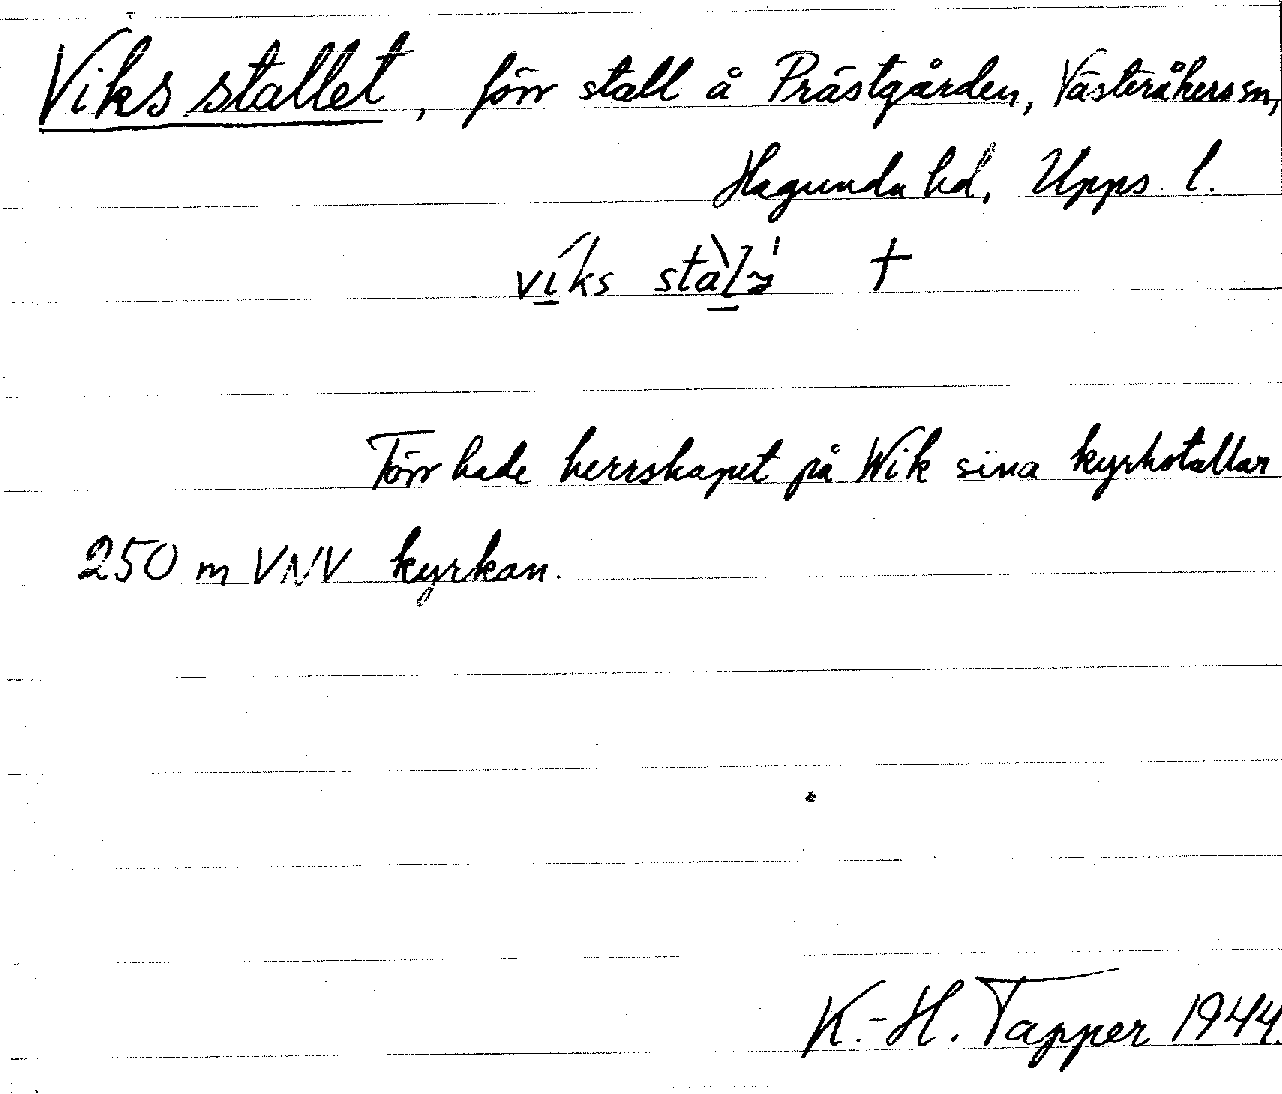 Viks stallet, förr stall å Prästgården, Västeråkers sn,
Hagunda hd, Upps. l.
viks †
Förr hade herrskapet på Wik sina kyrkstallar
250 m VNV kyrkan.
K.-H. Tapper 1944.